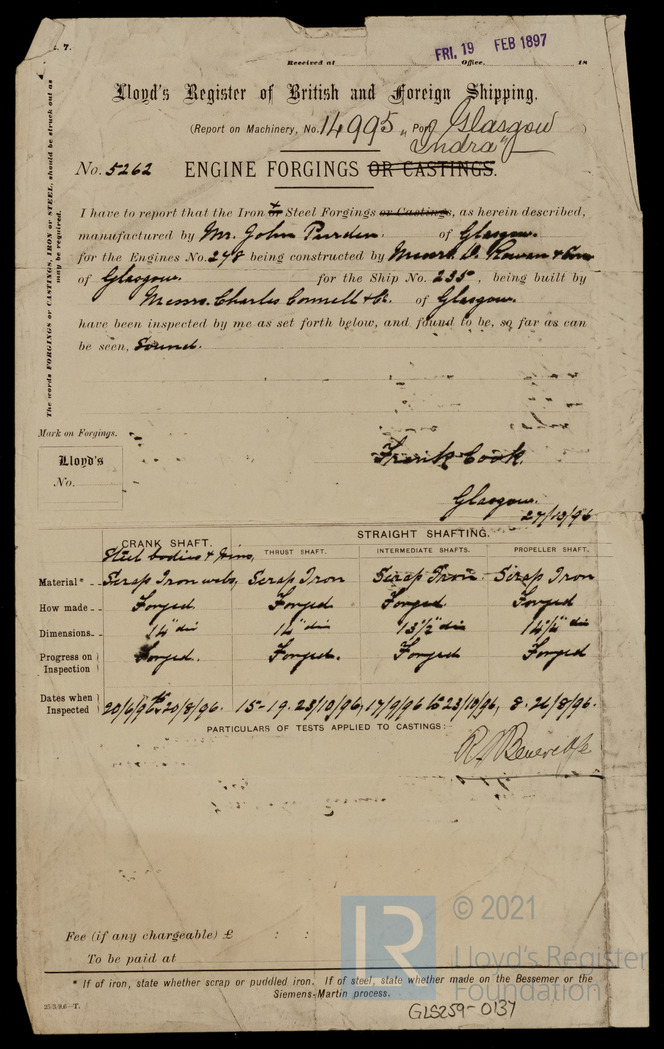 . 7.
FRI. 19 FEB 1897
Received at Office. 18
Lloyd's Register of British and Foreign Shipping.
(Report on Machinery, No. 14995, Port Glasgow
"Indra")
No. 5262 ENGINE FORGINGS OR CASTINGS.
I have to report that the Iron or + Steel Forgings or Castings, as herein described,
manufactured by Mr. John Purden. of Glasgow.
for the Engines No. 278 being constructed by Messrs D. Rowan & Son
of Glasgow. for the Ship No. 235, being built by
Messrs. Charles Connell & Co. of Glasgow.
have been inspected by me as set forth below, and found to be, so far as can
be seen, Sound.
The words FORGINGS or CASTINGS, IRON or STEEL, should be struck out as
may be required.
Mark on Forgings.
Lloyd's
No.
Frank Cook.
Glasgow.
27/10/96
CRANK SHAFT. STRAIGHT SHAFTING.
THRUST SHAFT. INTERMEDIATE SHAFTS. PROPELLER SHAFT.
Steel bodies & pins,
Material* Scrap Iron webs, Scrap Iron Scrap Iron Scrap Iron
How made Forged Forged Forged Forged
Dimensions 14" dia 14" dia 13½" dia 14½" dia
Progress on Inspection Forged. Forged. Forged Forged
Dates when Inspected 20/6/96 to 20/8/96. 15-19. 23/10/96, 17/9/96 to 23/10/96, 8. 26/8/96.
PARTICULARS OF TESTS APPLIED TO CASTINGS:
Fee (if any chargeable) £ : :
To be paid at
* If of iron, state whether scrap or puddled iron. If of steel, state whether made on the Bessemer or the
Siemens-Martin process.
GLS259-0137
LR
© 2021
Lloyd's Register
Foundation